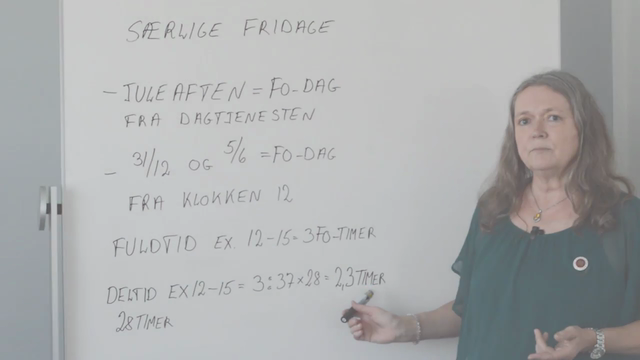 SÆRLIGE FRIDAGE
- JULEAFTEN = FO-DAG
FRA DAGTJENESTEN
- 31/12 OG 5/6 = FO-DAG
FRA KLOKKEN 12
FULDTID EX. 12-15 = 3 FO-TIMER
DELTID EX 12-15 = 3:37×28 = 2,3 TIMER
28 TIMER